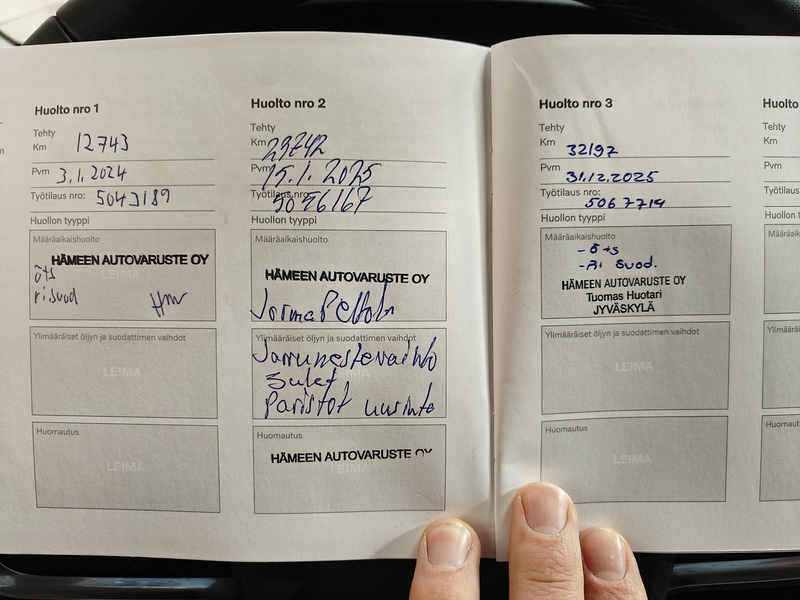 Huolto nro 1
Tehty
Km 12743
Pvm 3.1.2024
Työtilaus nro: 5043189
Huollon tyyppi
Määräaikaishuolto
HÄMEEN AUTOVARUSTE OY
öts
risuod
LEIMA
Ylimääräiset öljyn ja suodattimen vaihdot
LEIMA
Huomautus
LEIMA
Huolto nro 2
Tehty
Km 29742
Pvm 15.1.2025
Työtilaus nro: 5056167
Huollon tyyppi
Määräaikaishuolto
HÄMEEN AUTOVARUSTE OY
Jorma Peltola
Ylimääräiset öljyn ja suodattimen vaihdot
Jarrunestevaihto
Sulat
Paristot uusinta
Huomautus
HÄMEEN AUTOVARUSTE OY
LEIMA
Huolto nro 3
Tehty
Km 32197
Pvm 31.12.2025
Työtilaus nro: 5067719
Huollon tyyppi
Määräaikaishuolto
- öts
- Ri suod.
HÄMEEN AUTOVARUSTE OY
Tuomas Huotari
JYVÄSKYLÄ
Ylimääräiset öljyn ja suodattimen vaihdot
LEIMA
Huomautus
LEIMA
Huolto
Tehty
Km
Pvm
Työtilaus
Huollon